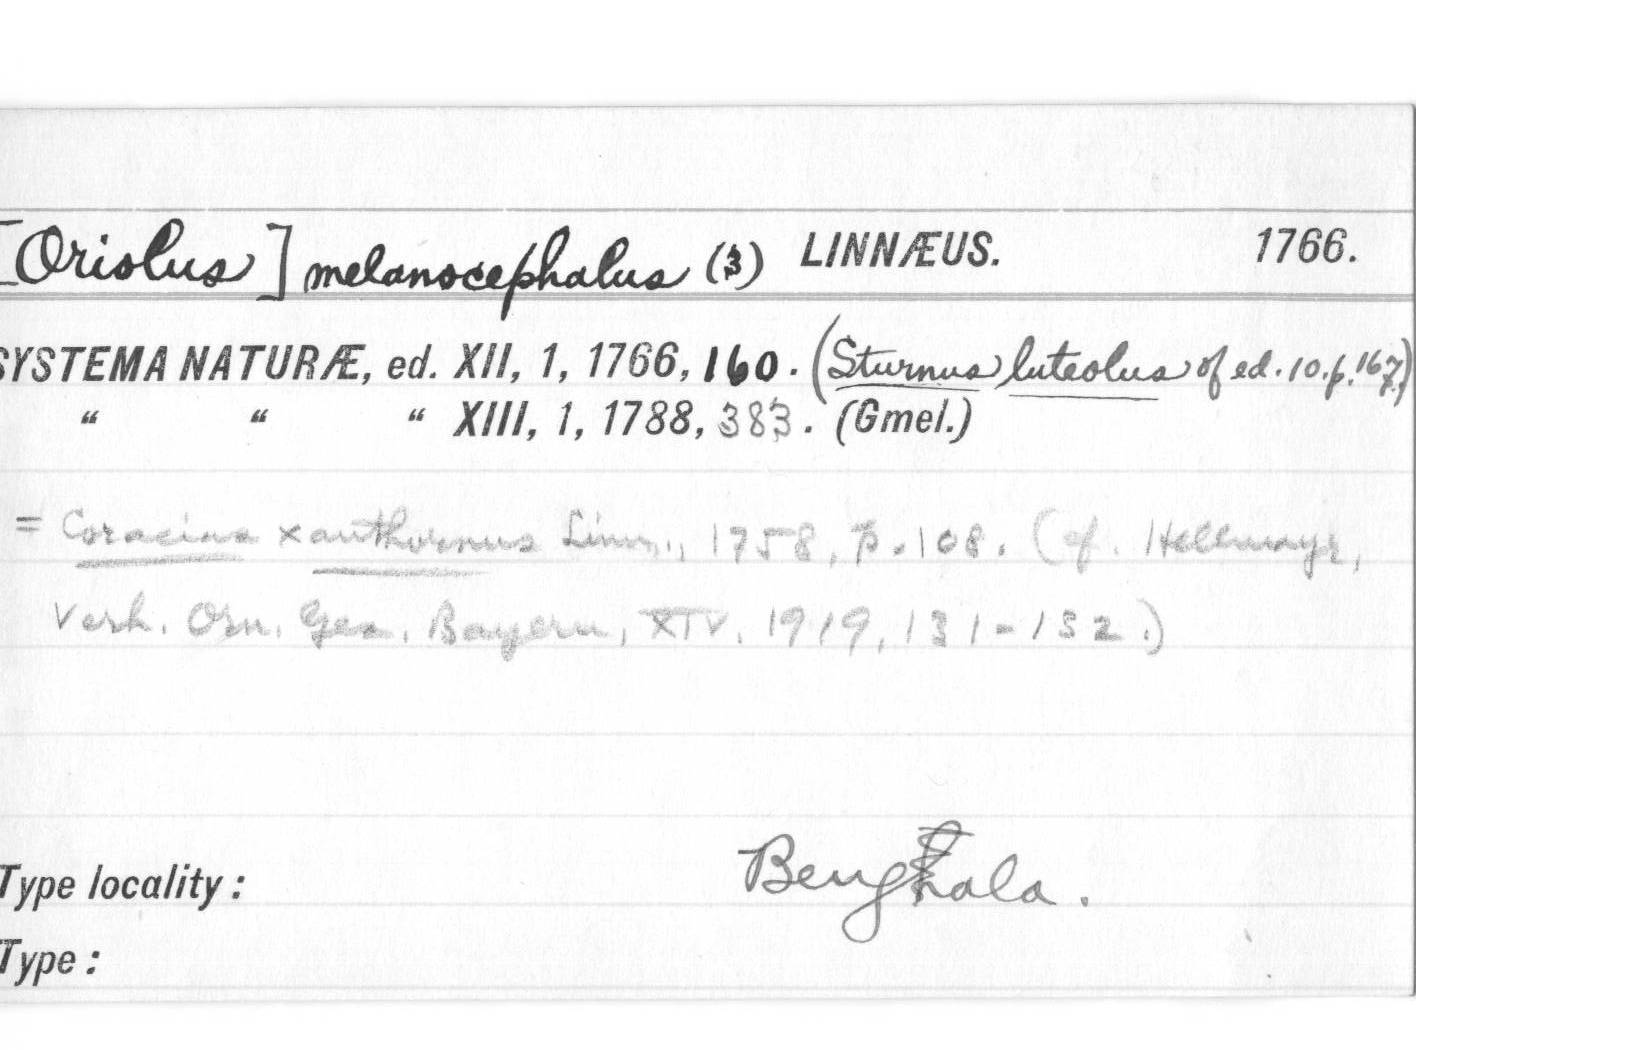 [Oriolus] melanocephalus (3) LINNÆUS. 1766.
SYSTEMA NATURÆ, ed. XII, 1, 1766, 160. (Sturnus luteolus of ed. 10. p. 167.)
“ “ “ XIII, 1, 1788, 383. (Gmel.)
= Coracias xanthornus Linn., 1758, p. 108. (cf. Hellmayr,
Verh. Orn. Ges. Bayern, XIV, 1919, 131-132.)
Type locality: Benghala.
Type: